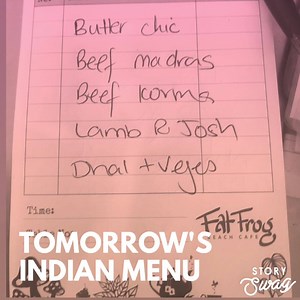 Butter chic
Beef madras
Beef korma
Lamb R Josh
Dhal + veges
Time:
Fat Frog
BEACH CAFE
TOMORROW'S
INDIAN MENU
STORY
Swag